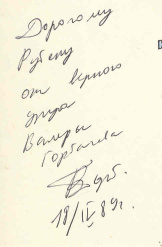 Дорогому
Рубену
от верного
друга
Валеры
Горбачева
18/IV 89г.